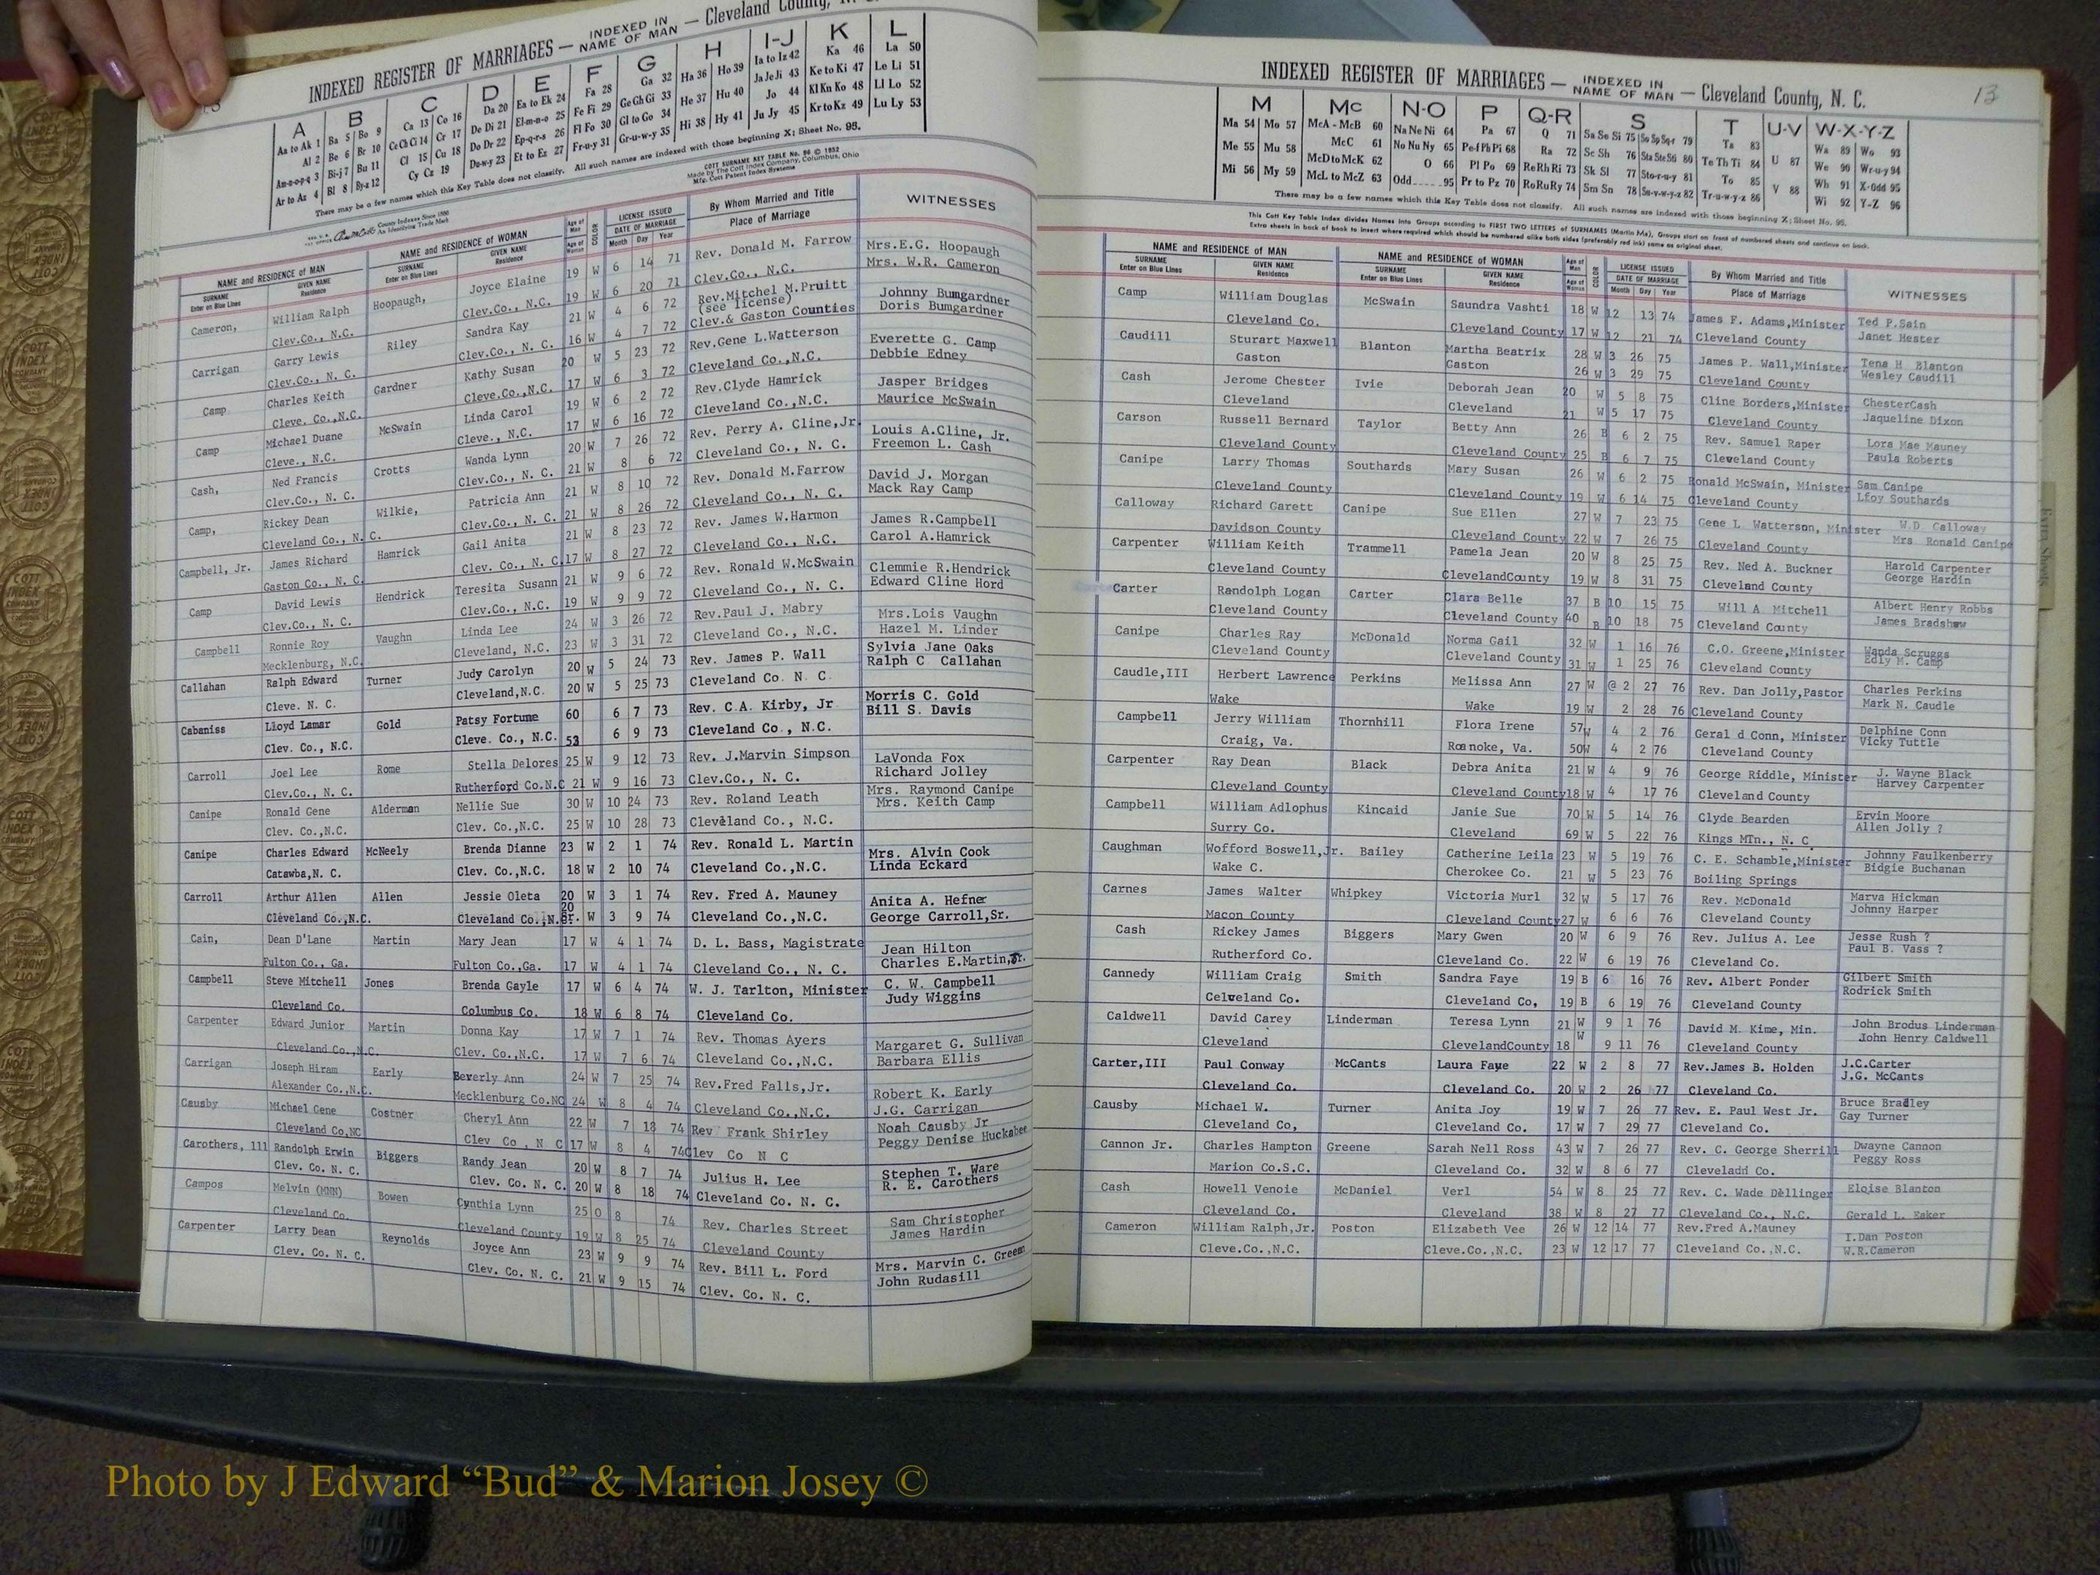 INDEXED REGISTER OF MARRIAGES — INDEXED IN NAME OF MAN — Cleveland County,
A B C D E F G H I-J K L
Aa to Ak 1 Ba 5 Bo 9 Ca 13 Co 16 Da 20 Ea to Ek 24 Fa 28 Ga 32 Ha 36 Ho 39 Ia to Iz 42 Ka 46 La 50
Al 2 Be 6 Br 10 Ce Ch Ci 14 Cr 17 De Di 21 El-m-n-o 25 Fe Fi 29 Ge Gh Gi 33 He 37 Hu 40 Ja Je Ji 43 Ke to Ki 47 Le Li 51
Am-n-o-p-q 3 Bi-j 7 Bu 11 Cl 15 Cu 18 Do Dr 22 Ep-q-r-s 26 Fl Fo 30 Gl to Go 34 Hi 38 Hy 41 Jo 44 Kl Kn Ko 48 Ll Lo 52
Ar to Az 4 Bl 8 By-z 12 Cy Cz 19 Du-w-y 23 Et to Ez 27 Fr-u-y 31 Gr-u-w-y 35 Ju Jy 45 Kr to Kz 49 Lu Ly 53
There may be a few names which this Key Table does not classify. All such names are indexed with those beginning X; Sheet No. 95.
COTT SURNAME KEY TABLE No. 96 © 1952
Made by The Cott Index Company, Columbus, Ohio
Mfg. Cott Patent Index Systems
County Indexes Since 1888
An Identifying Trade Mark
NAME and RESIDENCE of MAN NAME and RESIDENCE of WOMAN Age of Man COLOR LICENSE ISSUED By Whom Married and Title WITNESSES
SURNAME Enter on Blue Lines GIVEN NAME Residence SURNAME Enter on Blue Lines GIVEN NAME Residence Age of Woman DATE OF MARRIAGE Month Day Year Place of Marriage
Cameron, William Ralph Hoopaugh, Joyce Elaine 19 W 6 14 71 Rev. Donald M. Farrow Mrs.E.G. Hoopaugh
Clev.Co., N.C. Clev.Co., N.C. 19 W 6 20 71 Clev.Co., N.C. Mrs. W.R. Cameron
Carrigan Garry Lewis Riley Sandra Kay 21 W 4 6 72 Rev.Mitchel M.Pruitt (see license) Johnny Bumgardner
Clev.Co., N. C. Clev.Co., N. C. 16 W 4 7 72 Clev.& Gaston Counties Doris Bumgardner
Camp Charles Keith Gardner Kathy Susan 20 W 5 23 72 Rev.Gene L.Watterson Everette G. Camp
Cleve. Co.,N.C. Cleve.Co.,N.C. 17 W 6 3 72 Cleveland Co.,N.C. Debbie Edney
Camp Michael Duane McSwain Linda Carol 19 W 6 2 72 Rev.Clyde Hamrick Jasper Bridges
Cleve., N.C. Cleve., N.C. 17 W 6 16 72 Cleveland Co.,N.C. Maurice McSwain
Cash, Ned Francis Crotts Wanda Lynn 20 W 7 26 72 Rev. Perry A. Cline,Jr. Louis A.Cline, Jr.
Clev.Co., N. C. Clev.Co., N. C. 21 W 8 6 72 Cleveland Co., N. C. Freemon L. Cash
Camp, Rickey Dean Wilkie, Patricia Ann 21 W 8 10 72 Rev. Donald M.Farrow David J. Morgan
Cleveland Co., N. C. Clev.Co., N. C. 21 W 8 26 72 Cleveland Co., N. C. Mack Ray Camp
Campbell, Jr. James Richard Hamrick Gail Anita 21 W 8 23 72 Rev. James W.Harmon James R.Campbell
Gaston Co., N. C. Clev. Co., N. C. 17 W 8 27 72 Cleveland Co., N.C. Carol A.Hamrick
Camp David Lewis Hendrick Teresita Susann 21 W 9 6 72 Rev. Ronald W.McSwain Clemmie R.Hendrick
Clev.Co., N. C. Clev.Co., N.C. 19 W 9 9 72 Cleveland Co., N. C. Edward Cline Hord
Campbell Ronnie Roy Vaughn Linda Lee 24 W 3 26 72 Rev.Paul J. Mabry Mrs.Lois Vaughn
Mecklenburg, N.C. Cleveland, N.C. 23 W 3 31 72 Cleveland Co., N.C. Hazel M. Linder
Callahan Ralph Edward Turner Judy Carolyn 20 W 5 24 73 Rev. James P. Wall Sylvia Jane Oaks
Cleve. N. C. Cleveland,N.C. 20 W 5 25 73 Cleveland Co. N. C. Ralph C Callahan
Cabaniss Lloyd Lamar Gold Patsy Fortune 60 6 7 73 Rev. C.A. Kirby, Jr Morris C. Gold
Clev. Co., N.C. Cleve. Co., N.C. 53 6 9 73 Cleveland Co., N.C. Bill S. Davis
Carroll Joel Lee Rome Stella Delores 25 W 9 12 73 Rev. J.Marvin Simpson LaVonda Fox
Clev.Co., N. C. Rutherford Co.N.C 21 W 9 16 73 Clev.Co., N. C. Richard Jolley
Canipe Ronald Gene Alderman Nellie Sue 30 W 10 24 73 Rev. Roland Leath Mrs. Raymond Canipe
Clev. Co.,N.C. Clev. Co.,N.C. 25 W 10 28 73 Cleveland Co., N.C. Mrs. Keith Camp
Canipe Charles Edward McNeely Brenda Dianne 23 W 2 1 74 Rev. Ronald L. Martin Mrs. Alvin Cook
Catawba,N. C. Clev. Co.,N.C. 18 W 2 10 74 Cleveland Co.,N.C. Linda Eckard
Carroll Arthur Allen Allen Jessie Oleta 20 W 3 1 74 Rev. Fred A. Mauney Anita A. Hefner
Cleveland Co.,N.C. Cleveland Co.,N.C. 20 W 3 9 74 Cleveland Co.,N.C. George Carroll,Sr.
Cain, Dean D'Lane Martin Mary Jean 17 W 4 1 74 D. L. Bass, Magistrate Jean Hilton
Fulton Co., Ga. Fulton Co.,Ga. 17 W 4 1 74 Cleveland Co., N. C. Charles E.Martin,Jr.
Campbell Steve Mitchell Jones Brenda Gayle 17 W 6 4 74 W. J. Tarlton, Minister C. W. Campbell
Cleveland Co. Columbus Co. 18 W 6 8 74 Cleveland Co. Judy Wiggins
Carpenter Edward Junior Martin Donna Kay 17 W 7 1 74 Rev. Thomas Ayers Margaret G. Sullivan
Cleveland Co.,N.C. Clev. Co.,N.C. 17 W 7 6 74 Cleveland Co.,N.C. Barbara Ellis
Carrigan Joseph Hiram Early Beverly Ann 24 W 7 25 74 Rev.Fred Falls,Jr. Robert K. Early
Alexander Co.,N.C. Mecklenburg Co.NC 24 W 8 4 74 Cleveland Co.,N.C. J.G. Carrigan
Causby Michael Gene Costner Cheryl Ann 22 W 7 18 74 Rev Frank Shirley Noah Causby Jr
Cleveland Co,NC Clev Co , N C 17 W 8 4 74 Clev Co N C Peggy Denise Huckabee
Carothers, 111 Randolph Erwin Biggers Randy Jean 20 W 8 7 74 Julius H. Lee Stephen T. Ware
Clev. Co. N. C. Clev. Co. N. C. 20 W 8 18 74 Cleveland Co. N. C. R. E. Carothers
Campos Melvin (MMN) Bowen Cynthia Lynn 25 O 8 74 Rev. Charles Street Sam Christopher
Cleveland Co. Cleveland County 19 W 8 25 74 Cleveland County James Hardin
Carpenter Larry Dean Reynolds Joyce Ann 23 W 9 9 74 Rev. Bill L. Ford Mrs. Marvin C. Greene
Clev. Co. N. C. Clev. Co. N. C. 21 W 9 15 74 Clev. Co. N. C. John Rudasill
INDEXED REGISTER OF MARRIAGES — INDEXED IN NAME OF MAN — Cleveland County, N. C. 13
M Mc N-O P Q-R S T U-V W-X-Y-Z
Ma 54 Mo 57 McA - McB 60 Na Ne Ni 64 Pa 67 Q 71 Sa Se Si 75 So Sp Sq-r 79 Ta 83 Wa 89 Wo 93
Me 55 Mu 58 McC 61 No Nu Ny 65 Pe-f Ph Pi 68 Ra 72 Sc Sh 76 Sta Ste Sti 80 Te Th Ti 84 U 87 We 90 Wr-u-y 94
Mi 56 My 59 McD to McK 62 O 66 Pl Po 69 Re Rh Ri 73 Sk Sl 77 Sto-r-u-y 81 To 85 V 88 Wh 91 X-Odd 95
McL to McZ 63 Odd 95 Pr to Pz 70 Ro Ru Ry 74 Sm Sn 78 Su-v-w-y-z 82 Tr-u-w-y-z 86 Wi 92 Y-Z 96
There may be a few names which this Key Table does not classify. All such names are indexed with those beginning X; Sheet No. 95.
This Cott Key Table Index divides Names into Groups according to FIRST TWO LETTERS of SURNAMES (Martin Ma), Groups start on front of numbered sheets and continue on back.
Extra sheets in back of book to insert where required which should be numbered alike both sides (preferably red ink) same as original sheet.
NAME and RESIDENCE OF MAN NAME and RESIDENCE OF WOMAN Age of Man COLOR LICENSE ISSUED By Whom Married and Title WITNESSES
SURNAME Enter on Blue Lines GIVEN NAME Residence SURNAME Enter on Blue Lines GIVEN NAME Residence Age of Woman DATE OF MARRIAGE Month Day Year Place of Marriage
Camp William Douglas McSwain Saundra Vashti 18 W 12 13 74 James F. Adams,Minister Ted P.Sain
Cleveland Co. Cleveland County 17 W 12 21 74 Cleveland County Janet Hester
Caudill Sturart Maxwell Blanton Martha Beatrix 28 W 3 26 75 James P. Wall,Minister Tena H Blanton
Gaston Gaston 26 W 3 29 75 Cleveland County Wesley Caudill
Cash Jerome Chester Ivie Deborah Jean 20 W 5 8 75 Cline Borders,Minister ChesterCash
Cleveland Cleveland 21 W 5 17 75 Cleveland County Jaqueline Dixon
Carson Russell Bernard Taylor Betty Ann 26 B 6 2 75 Rev. Samuel Raper Lora Mae Mauney
Cleveland County Cleveland County 25 B 6 7 75 Cleveland County Paula Roberts
Canipe Larry Thomas Southards Mary Susan 26 W 6 2 75 Ronald McSwain, Minister Sam Canipe
Cleveland County Cleveland County 19 W 6 14 75 Cleveland County Lfoy Southards
Calloway Richard Garett Canipe Sue Ellen 27 W 7 23 75 Gene L Watterson, Minister W.D. Calloway
Davidson County Cleveland County 22 W 7 26 75 Cleveland County Mrs. Ronald Canipe
Carpenter William Keith Trammell Pamela Jean 20 W 8 25 75 Rev. Ned A. Buckner Harold Carpenter
Cleveland County ClevelandCounty 19 W 8 31 75 Cleveland County George Hardin
Carter Randolph Logan Carter Clara Belle 37 B 10 15 75 Will A Mitchell Albert Henry Robbs
Cleveland County Cleveland County 40 B 10 18 75 Cleveland County James Bradshaw
Canipe Charles Ray McDonald Norma Gail 32 W 1 16 76 C.O. Greene,Minister Wanda Scruggs
Cleveland County Cleveland County 31 W 1 25 76 Cleveland County Edly M. Camp
Caudle,III Herbert Lawrence Perkins Melissa Ann 27 W @ 2 27 76 Rev. Dan Jolly,Pastor Charles Perkins
Wake Wake 19 W 2 28 76 Cleveland County Mark N. Caudle
Campbell Jerry William Thornhill Flora Irene 57 W 4 2 76 Geral d Conn, Minister Delphine Conn
Craig, Va. Roanoke, Va. 50 W 4 2 76 Cleveland County Vicky Tuttle
Carpenter Ray Dean Black Debra Anita 21 W 4 9 76 George Riddle, Minister J. Wayne Black
Cleveland County Cleveland County 18 W 4 17 76 Cleveland County Harvey Carpenter
Campbell William Adlophus Kincaid Janie Sue 70 W 5 14 76 Clyde Bearden Ervin Moore
Surry Co. Cleveland 69 W 5 22 76 Kings MTn., N. C. Allen Jolly ?
Caughman Wofford Boswell,Jr. Bailey Catherine Leila 23 W 5 19 76 C. E. Schamble,Minister Johnny Faulkenberry
Wake C. Cherokee Co. 21 W 5 23 76 Boiling Springs Bidgie Buchanan
Carnes James Walter Whipkey Victoria Murl 32 W 5 17 76 Rev. McDonald Marva Hickman
Macon County Cleveland County 27 W 6 6 76 Cleveland County Johnny Harper
Cash Rickey James Biggers Mary Gwen 20 W 6 9 76 Rev. Julius A. Lee Jesse Rush ?
Rutherford Co. Cleveland Co. 22 W 6 19 76 Cleveland Co. Paul B. Vass ?
Cannedy William Craig Smith Sandra Faye 19 B 6 16 76 Rev. Albert Ponder Gilbert Smith
Celveland Co. Cleveland Co, 19 B 6 19 76 Cleveland County Rodrick Smith
Caldwell David Carey Linderman Teresa Lynn 21 W 9 1 76 David M. Kime, Min. John Brodus Linderman
Cleveland ClevelandCounty 18 W 9 11 76 Cleveland County John Henry Caldwell
Carter,III Paul Conway McCants Laura Faye 22 W 2 8 77 Rev.James B. Holden J.C.Carter
Cleveland Co. Cleveland Co. 20 W 2 26 77 Cleveland Co. J.G. McCants
Causby Michael W. Turner Anita Joy 19 W 7 26 77 Rev. E. Paul West Jr. Bruce Bradley
Cleveland Co, Cleveland Co. 17 W 7 29 77 Cleveland Co. Gay Turner
Cannon Jr. Charles Hampton Greene Sarah Nell Ross 43 W 7 26 77 Rev. C. George Sherrill Dwayne Cannon
Marion Co.S.C. Cleveland Co. 32 W 8 6 77 Cleveladn Co. Peggy Ross
Cash Howell Venoie McDaniel Verl 54 W 8 25 77 Rev. C. Wade Dellinger Eloise Blanton
Cleveland Co. Cleveland 38 W 8 27 77 Cleveland Co., N.C. Gerald L. Eaker
Cameron William Ralph,Jr. Poston Elizabeth Vee 26 W 12 14 77 Rev.Fred A.Mauney I.Dan Poston
Cleve.Co.,N.C. Cleve.Co.,N.C. 23 W 12 17 77 Cleveland Co.,N.C. W.R.Cameron
Photo by J Edward “Bud” & Marion Josey ©